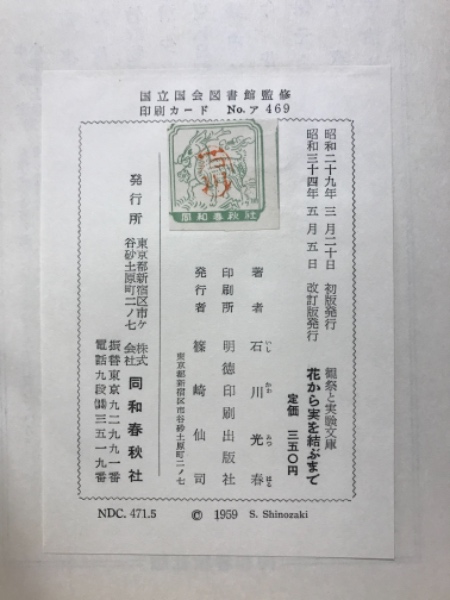 国立国会図書館監修
印刷カード No.ア 469
昭和二十九年 三月二十日 初版発行
昭和三十四年 五月五日 改訂版発行
観察と実験文庫
花から実を結ぶまで
定価 三五〇円
著者 石川光春
いし かわ みつ はる
印刷所 明徳印刷出版社
発行者 篠崎仙司
東京都新宿区市谷砂土原町二ノ七
同和春秋社
発行所 東京都新宿区市ケ
谷砂土原町二ノ七
株式
会社 同和春秋社
振替東京九二九九一番
電話九段(33)三五一九番
NDC. 471.5 © 1959 S. Shinozaki